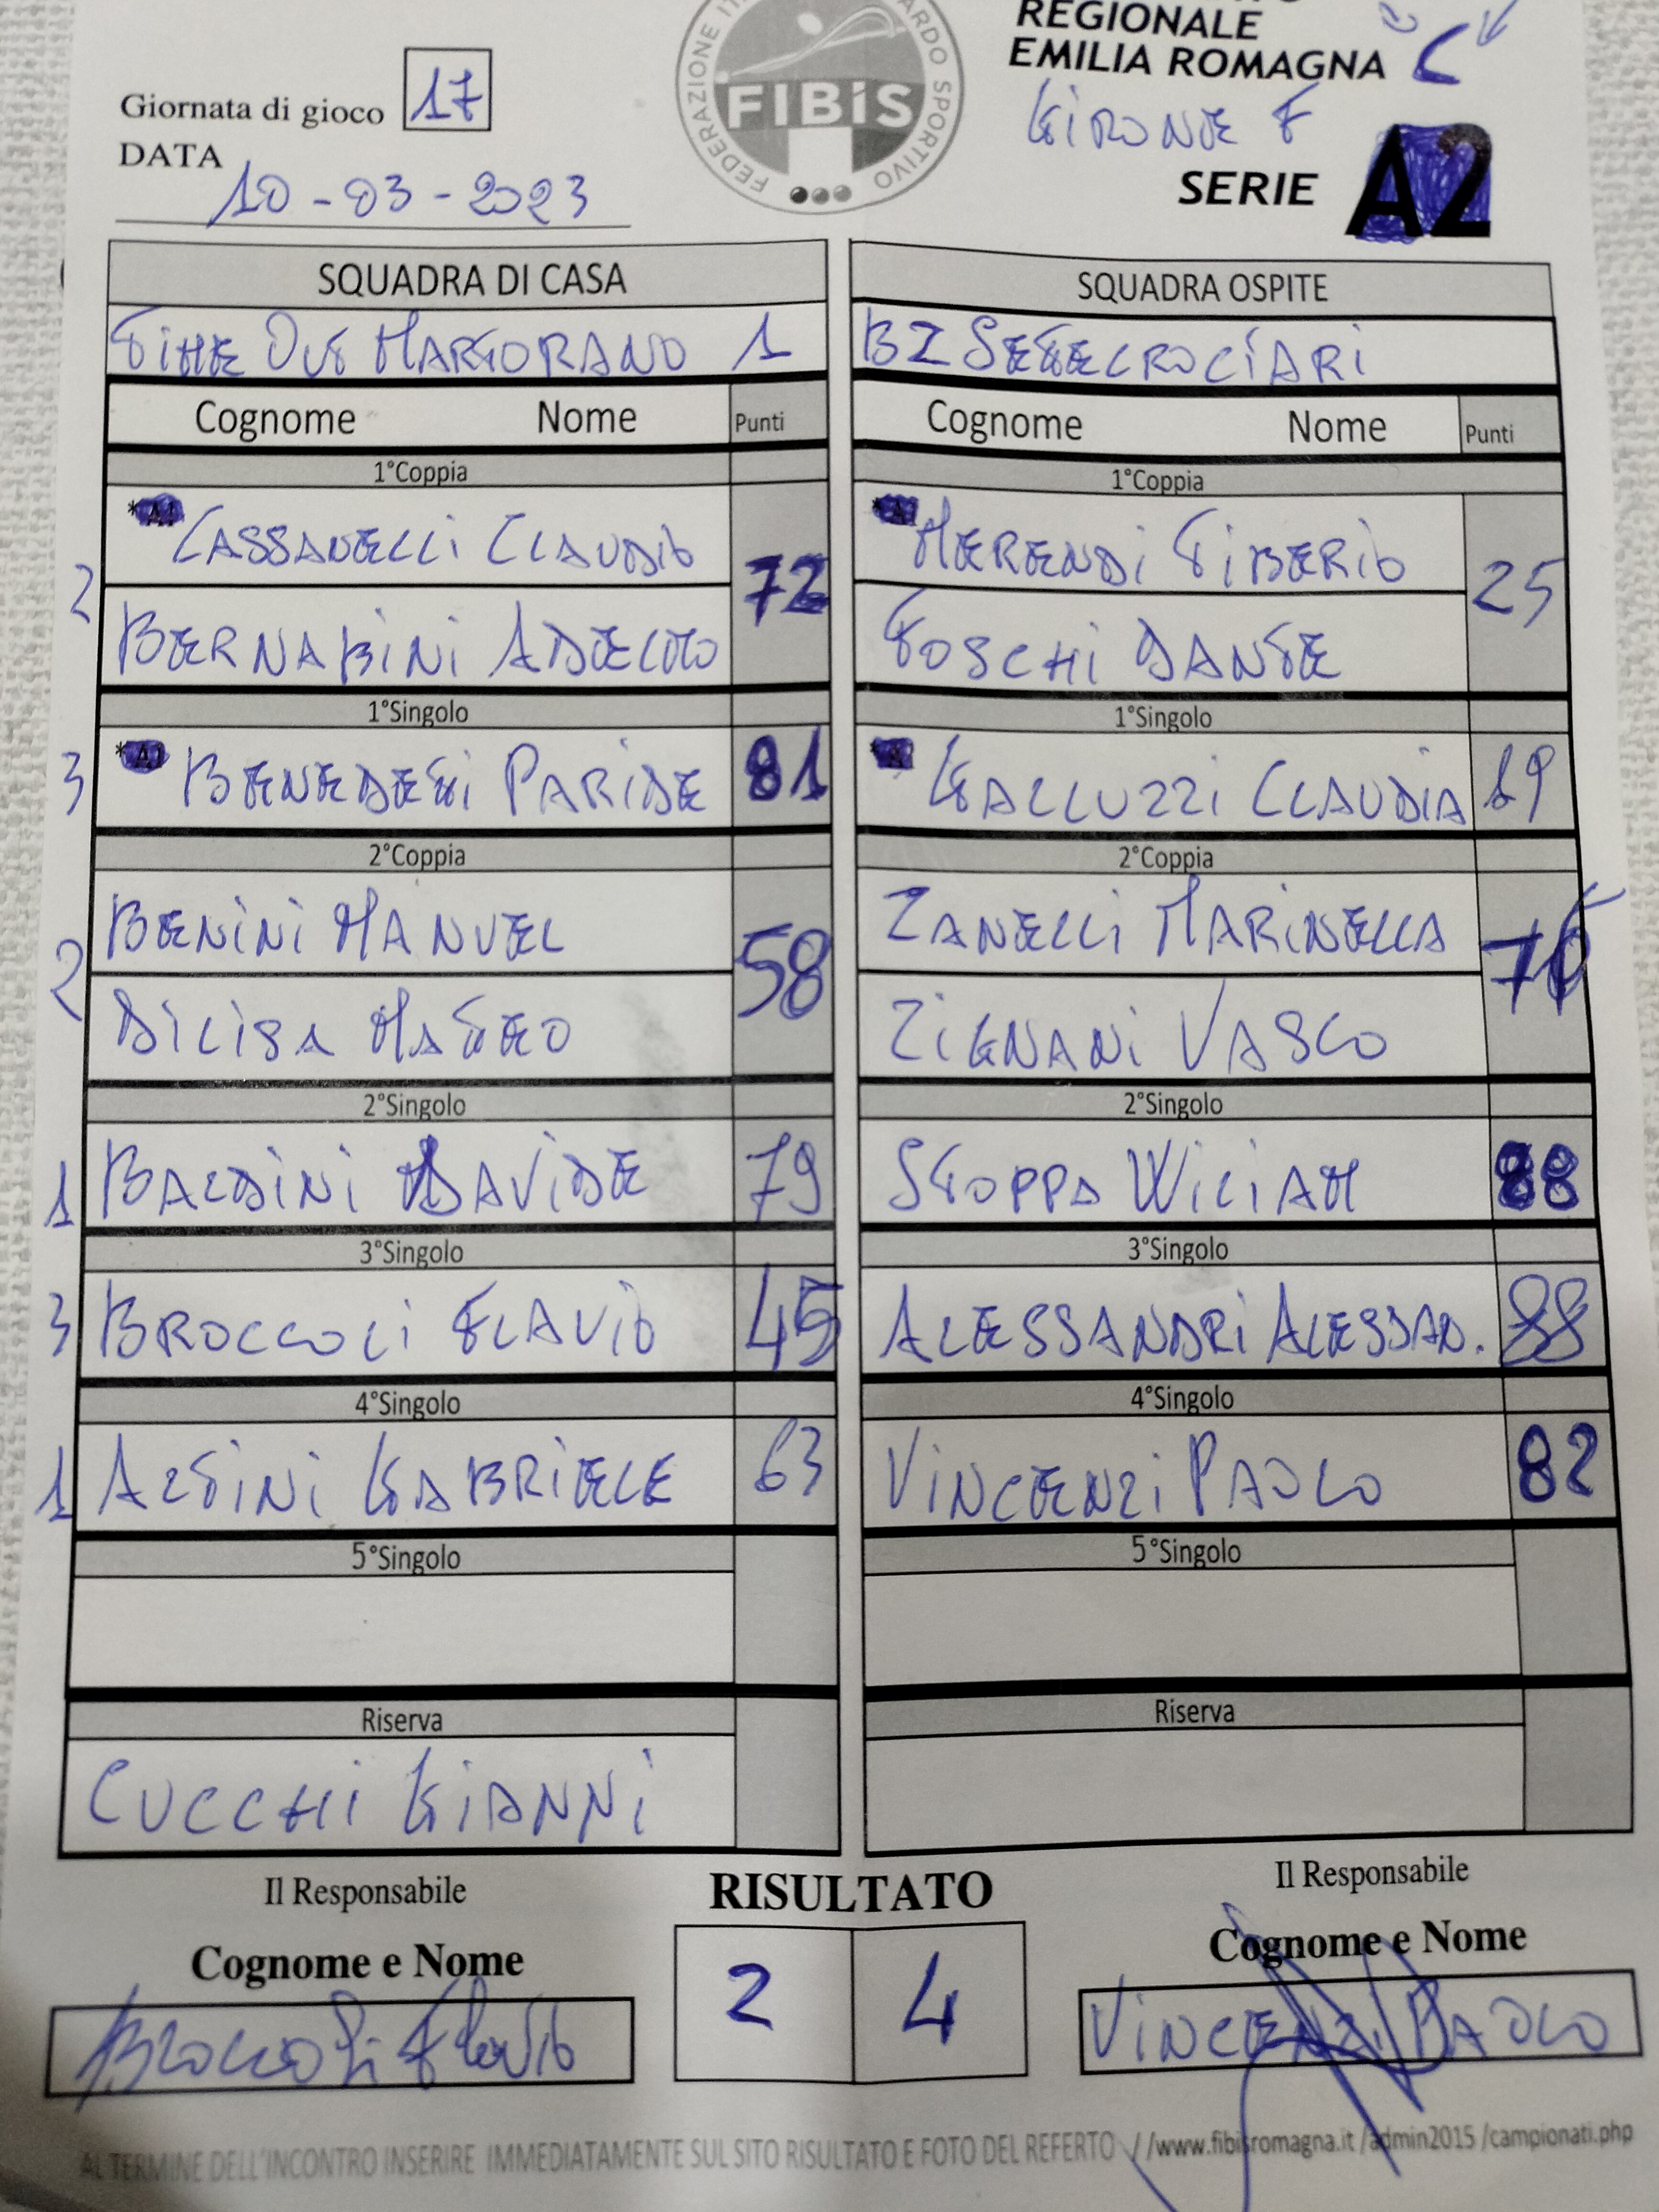 REGIONALE
EMILIA ROMAGNA C
GIRONE F
SERIE A2
Giornata di gioco 17
DATA
10-03-2023
FIBiS
SPORTIVO
FEDERAZIONE
SQUADRA DI CASA
TIME OUT MARTORANO 1
Cognome Nome Punti
1°Coppia
*A1 CASSANELLI CLAUDIO
2 72
BERNABINI ADELMO
1°Singolo
3 *A1 BENEDETTI PARIDE 81
2°Coppia
BENINI MANUEL
2 58
DILISA MATTEO
2°Singolo
1 BALDINI DAVIDE 79
3°Singolo
3 BROCCOLI FLAVIO 45
4°Singolo
1 ALTINI GABRIELE 63
5°Singolo
Riserva
CUCCHI GIANNI
SQUADRA OSPITE
BZ SETTECROCIARI
Cognome Nome Punti
1°Coppia
MERENDI TIBERIO
25
FOSCHI DANTE
1°Singolo
GALLUZZI CLAUDIA 19
2°Coppia
ZANELLI MARINELLA
ZIGNANI VASCO
2°Singolo
STOPPA WILIAM 88
3°Singolo
ALESSANDRI ALESSAD. 88
4°Singolo
VINCENZI PAOLO 82
5°Singolo
Riserva
Il Responsabile
Cognome e Nome
Broccoli Flavio
RISULTATO
2 4
Il Responsabile
Cognome e Nome
VINCENZI PAOLO
AL TERMINE DELL'INCONTRO INSERIRE IMMEDIATAMENTE SUL SITO RISULTATO E FOTO DEL REFERTO //www.fibisromagna.it /admin2015 /campionati.php